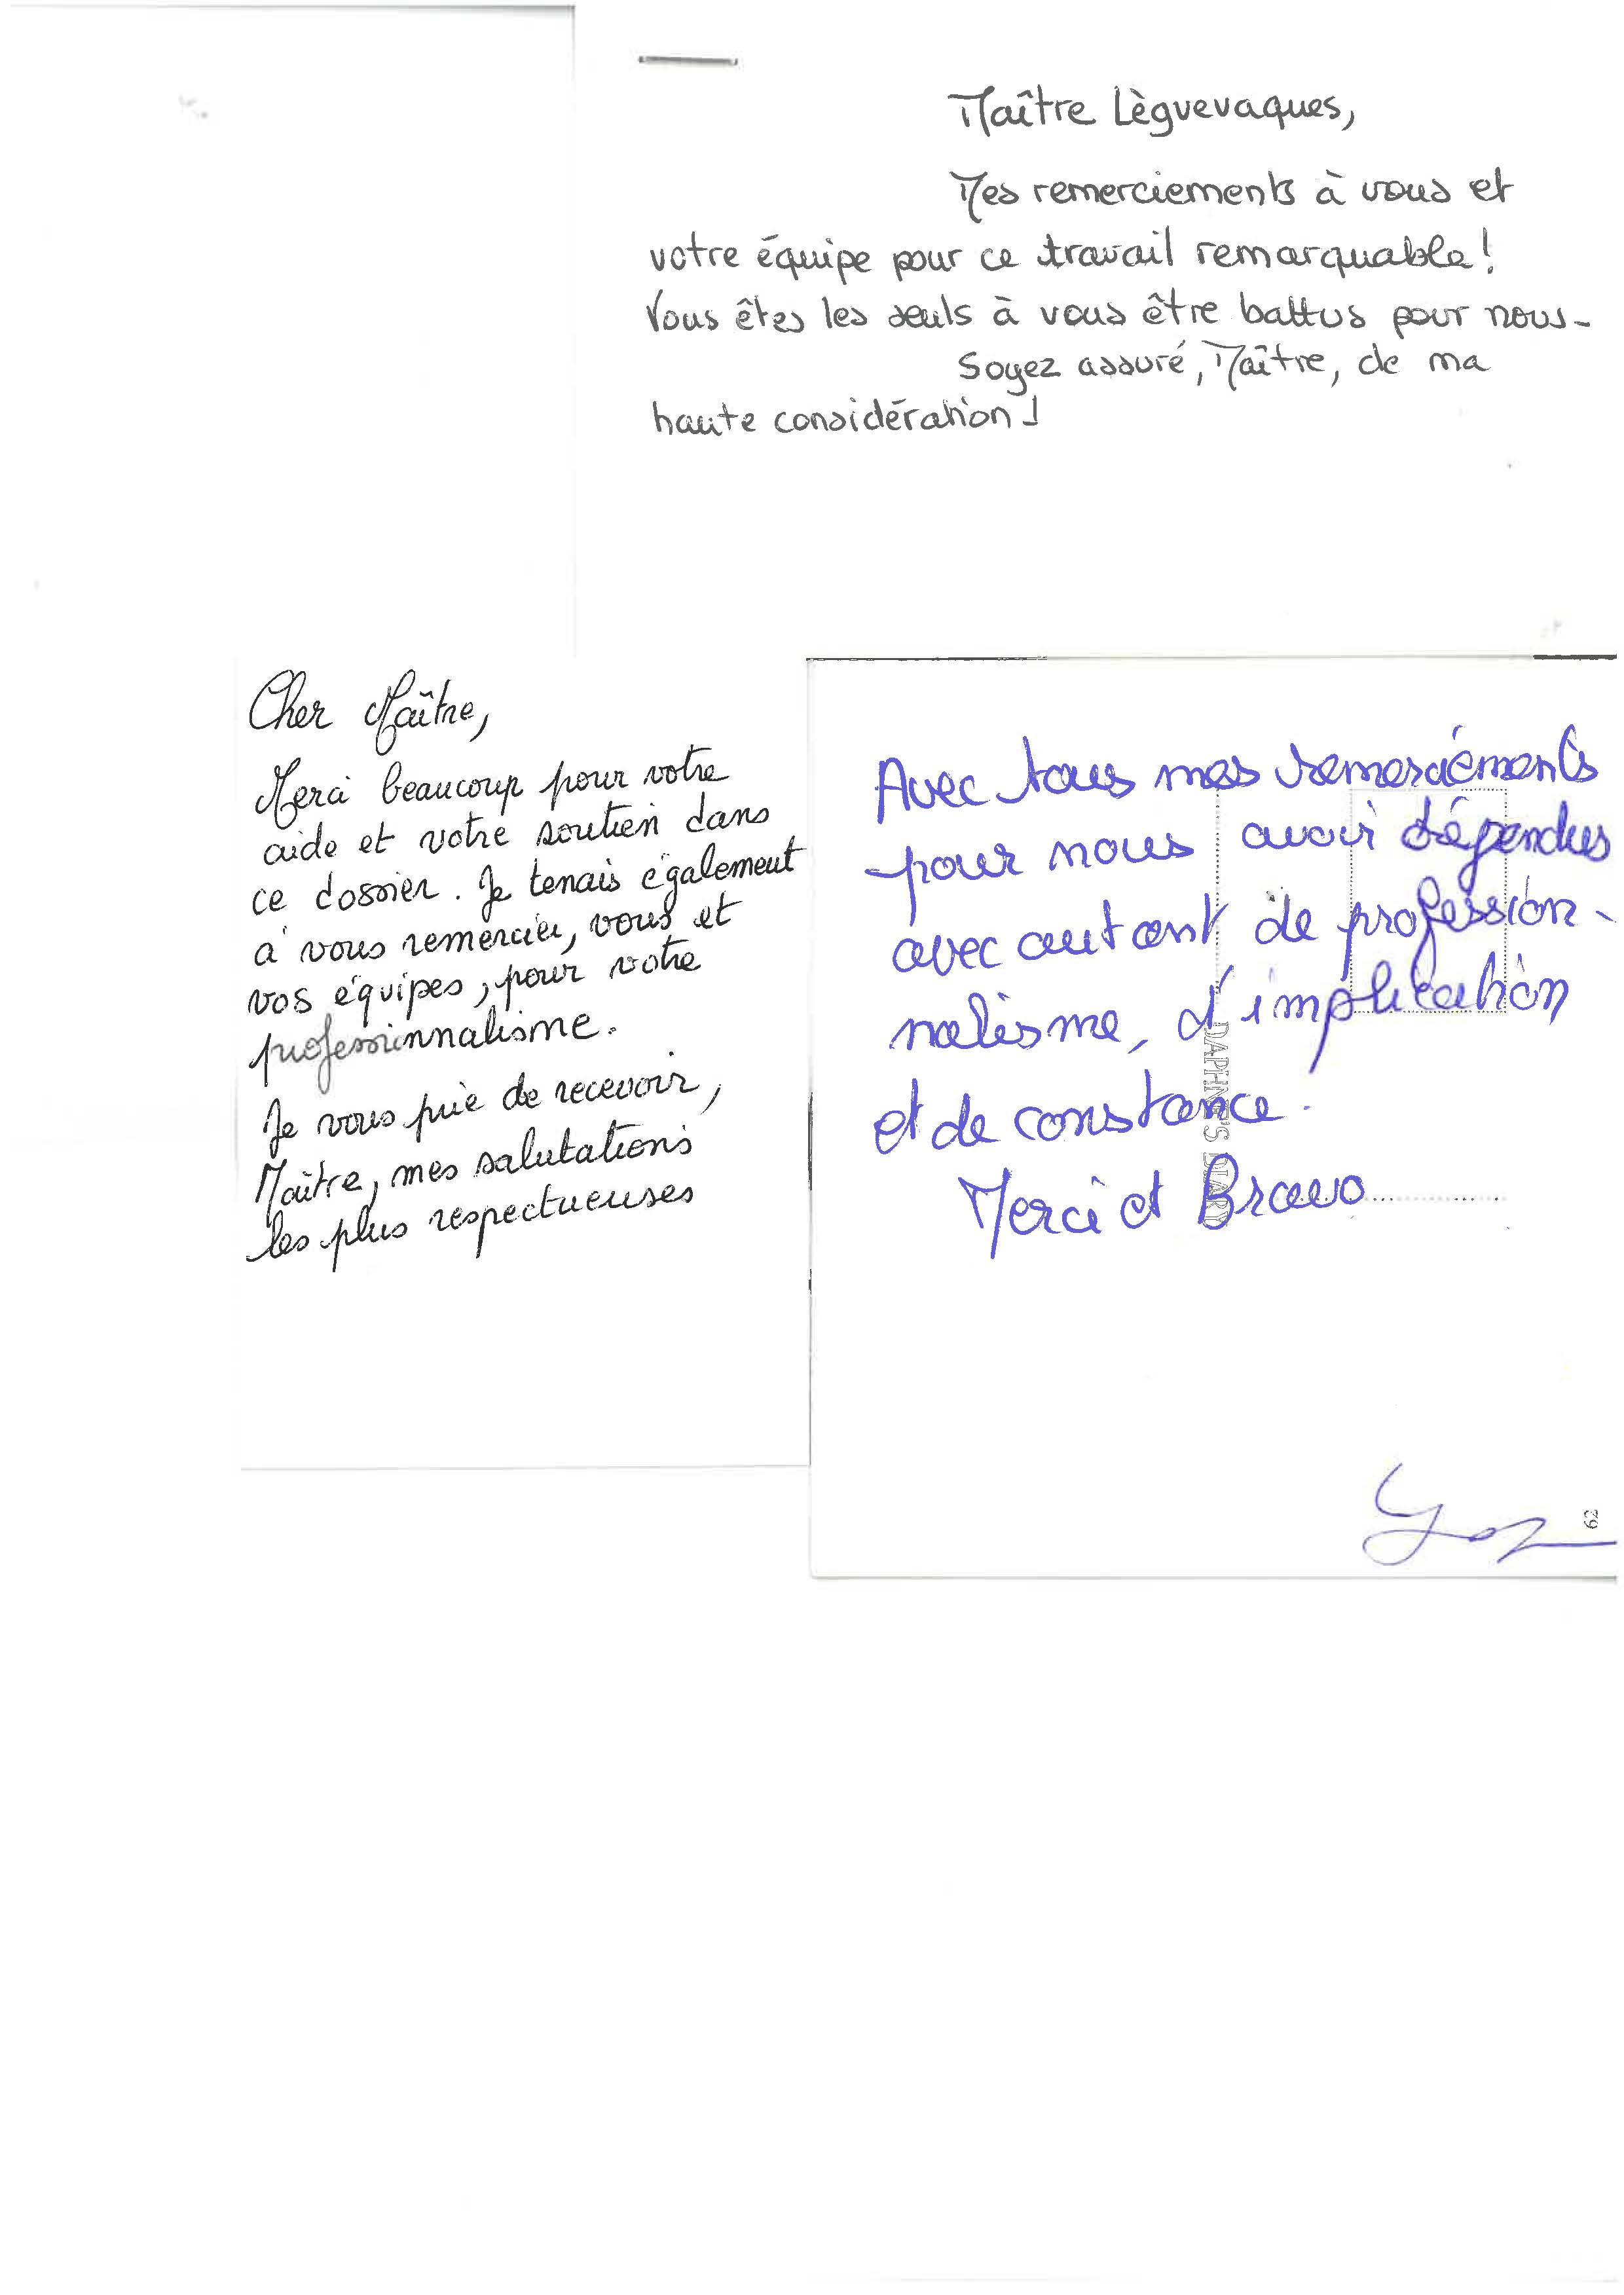 Maître Lèguevaques,
Mes remerciements à vous et
votre équipe pour ce travail remarquable !
Vous êtes les seuls à vous être battus pour nous-
Soyez assuré, Maître, de ma
haute considération !
Cher Maître,
Merci beaucoup pour votre
aide et votre soutien dans
ce dossier. Je tenais également
à vous remercier, vous et
vos équipes, pour votre
professionnalisme.
Je vous prie de recevoir,
Maître, mes salutations
les plus respectueuses
Avec tous mes remerciements
pour nous avoir défendus
avec autant de profession-
nalisme, d'implication
et de constance.
Merci et Bravo
DAPHNE'S DIARY
62